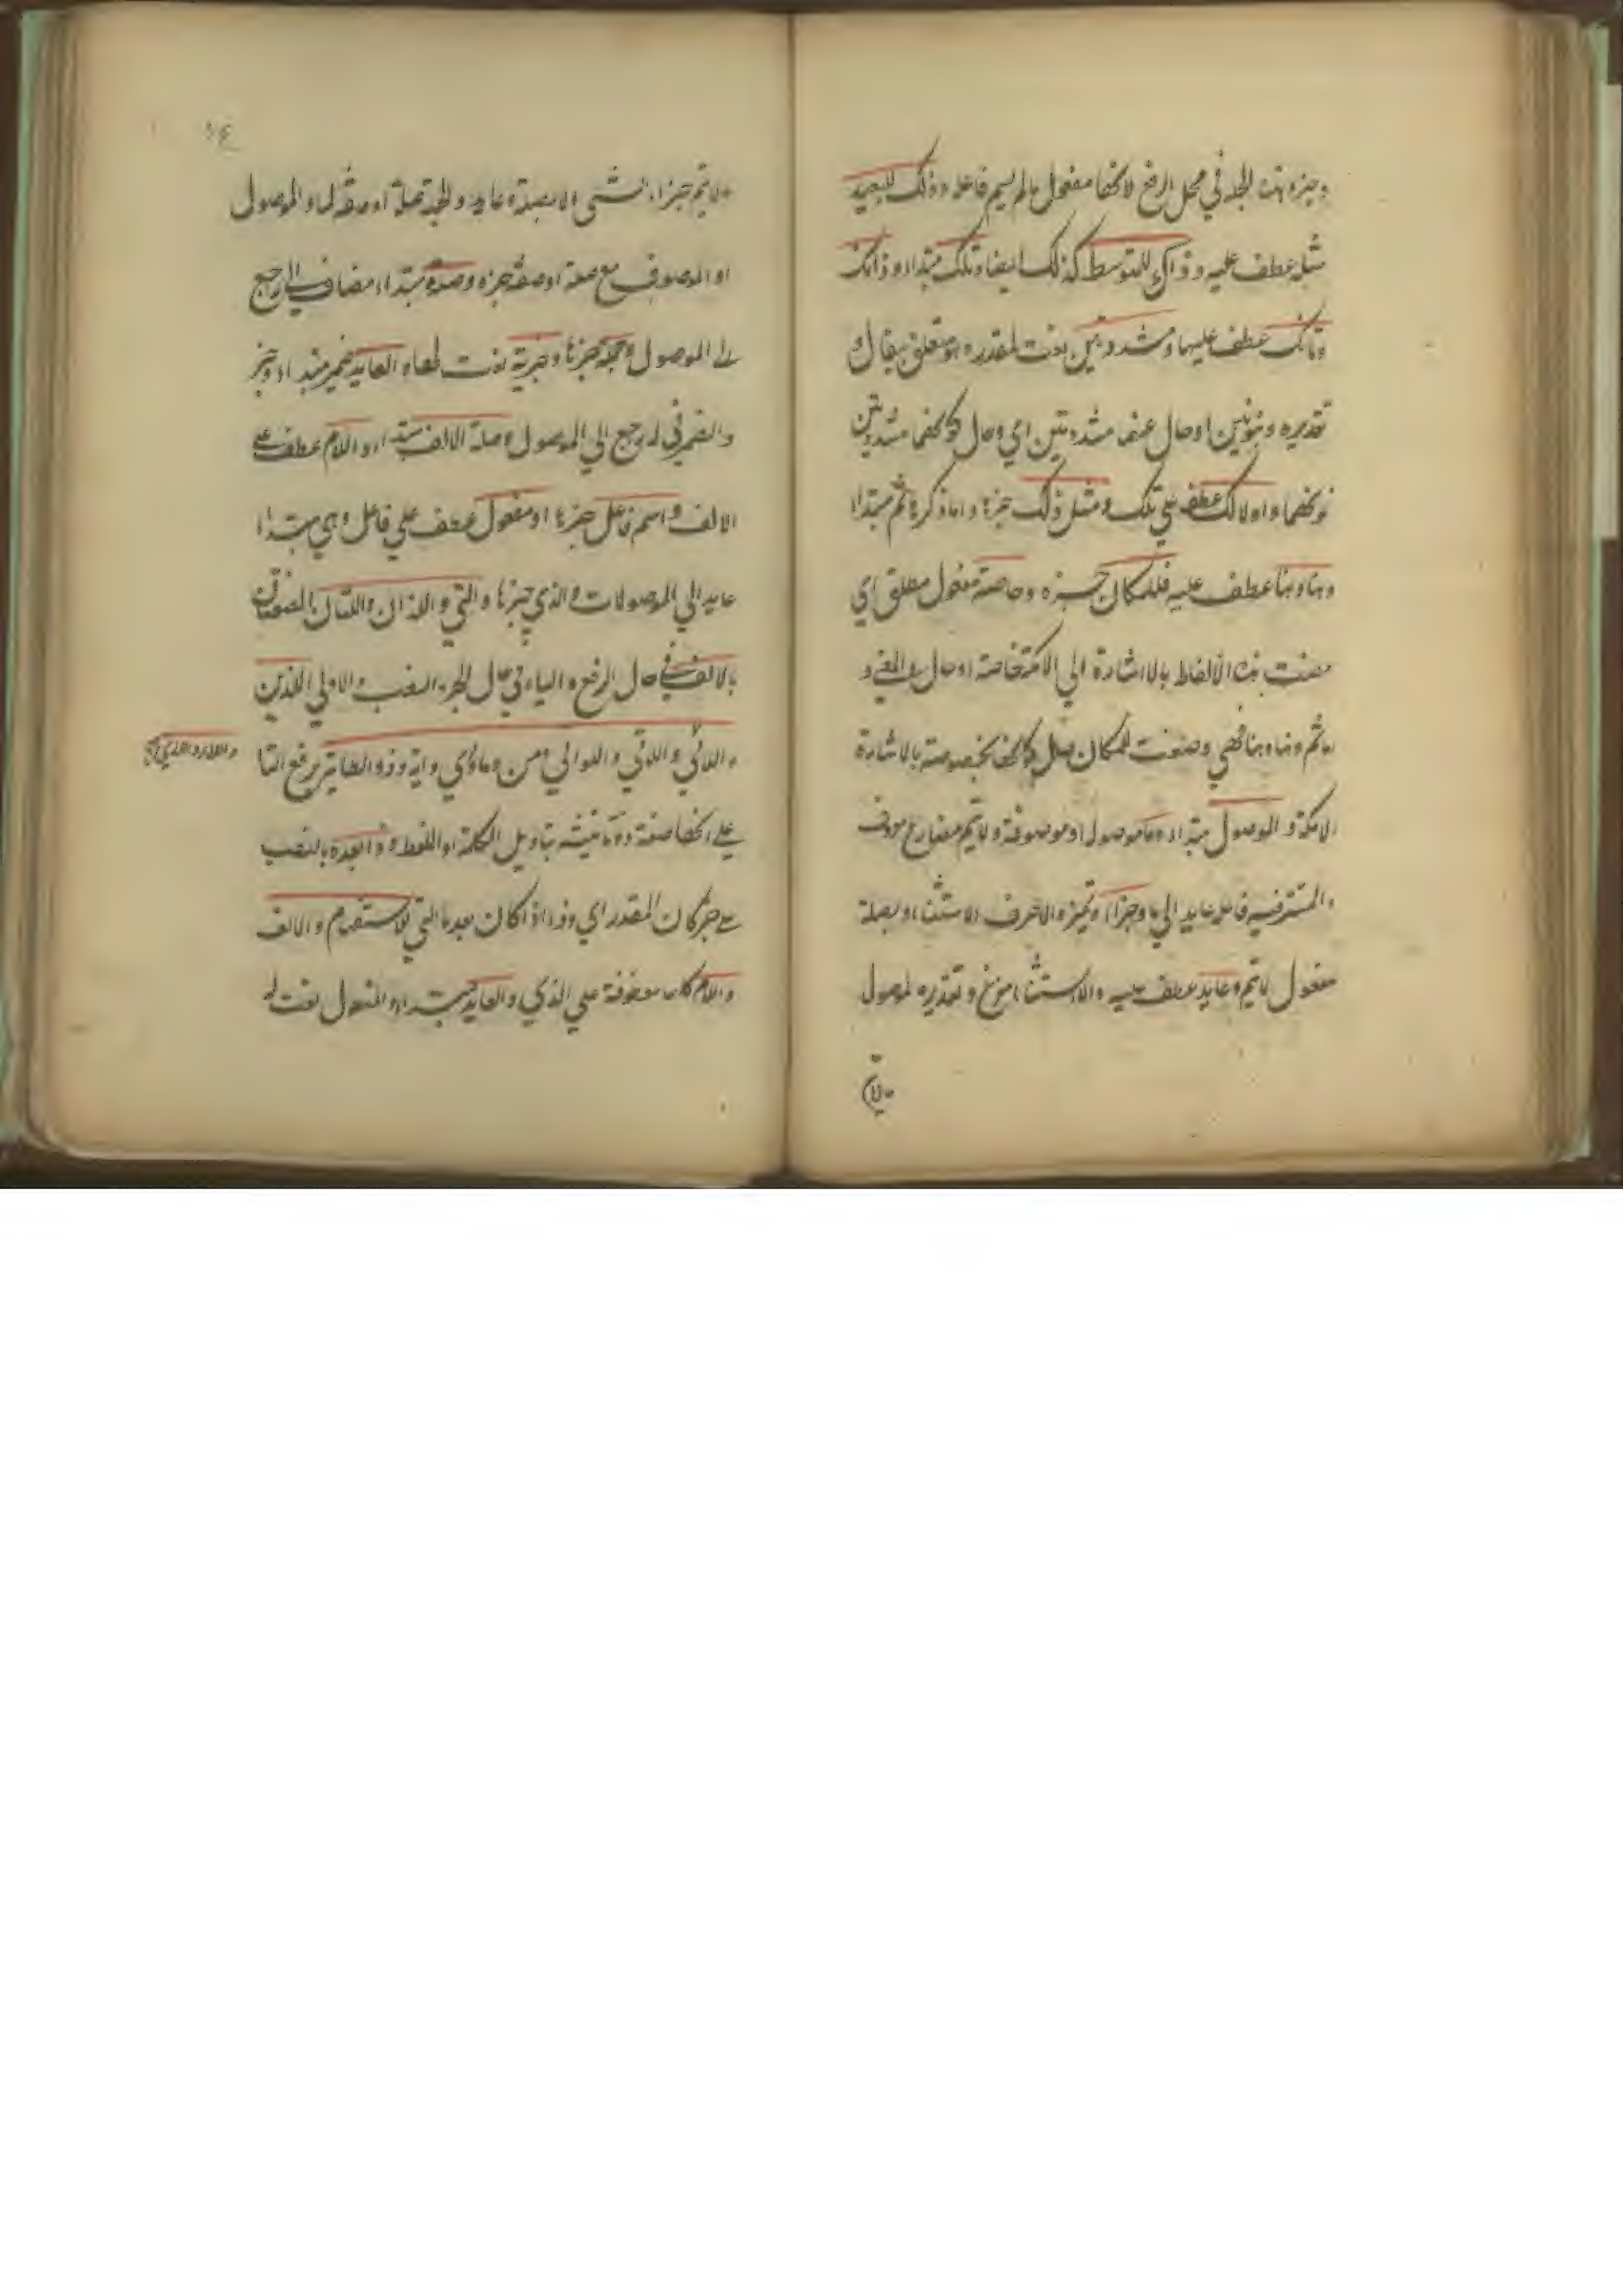 وخبره هذه الجملة في محل الرفع لانها مفعول مالم يسم فاعله وذلك للبعيد
مثله عطف عليه وذاك للمتوسط كذلك ايضا وتلك مبتداء وذانك
وتانك عطف عليها ومشددتين نعت لمقدر هو متعلق بيقال و
تقديره وبنونين او حال عنهما مشددتين اي وحال كونهما مشددتين
نونهما واولالك عطف علي تلك ومثل ذلك خبرها واما ذكره ثم مبتداء
وهنا وهنا عطف عليه فللمكان خبره وخاصة مفعول مطلق اي
خصت هذه الالفاظ بالاشارة الي الامكنة خاصة او حال والمعني و
اما ثم وهنا وهنا فهي وضعت للمكان حال كونها مخصوصة بالاشارة
الامكنة والموصول مبتداء وما موصول او موصوفة ولا يتم مضارع معروف
والمستتر فيه فاعله عايد الي ما وجزاء تميزه والاحرف الاستثناء وبصلة
مفعول لايتم وعايد عطف عليه والاستثناء مفرغ وتقديره الموصول
ولا يتم
ولا يتم جزاء بشئ الا بصلة وعايد والجملة صلة او صفة لما والموصول
او الموصوف مع صلة او صفة خبره وصلته مبتداء مضاف الي راجع
الي الموصول وجملة خبرها وخبرية نعت لها والعايد ضمير مبتداء وخبر
والضمير في له راجع الي الموصول وصلة الالف مبتداء واللام عطف علي
الالف واسم فاعل خبرها او مفعول عطف علي فاعل وهي مبتداء
عايد الي الموصولات والذي خبرها والتي واللذان واللتان الملتصقان
بالالف في حال الرفع والياء في حال الجر والنصب والاولي والذين
واللائي واللاتي واللواتي ومن وما واي واية وذو الطائية برفع التا
علي انها صفة وتانيثه بتاويل الكلمة او اللفظة وذا بعد ما بالنصب
علي خبر كان المقدر اي وذا اذا كان بعد ما التي للاستفهام والالف
واللام كلها معطوفة علي الذي والعايد مبتداء والمفعول نعت له